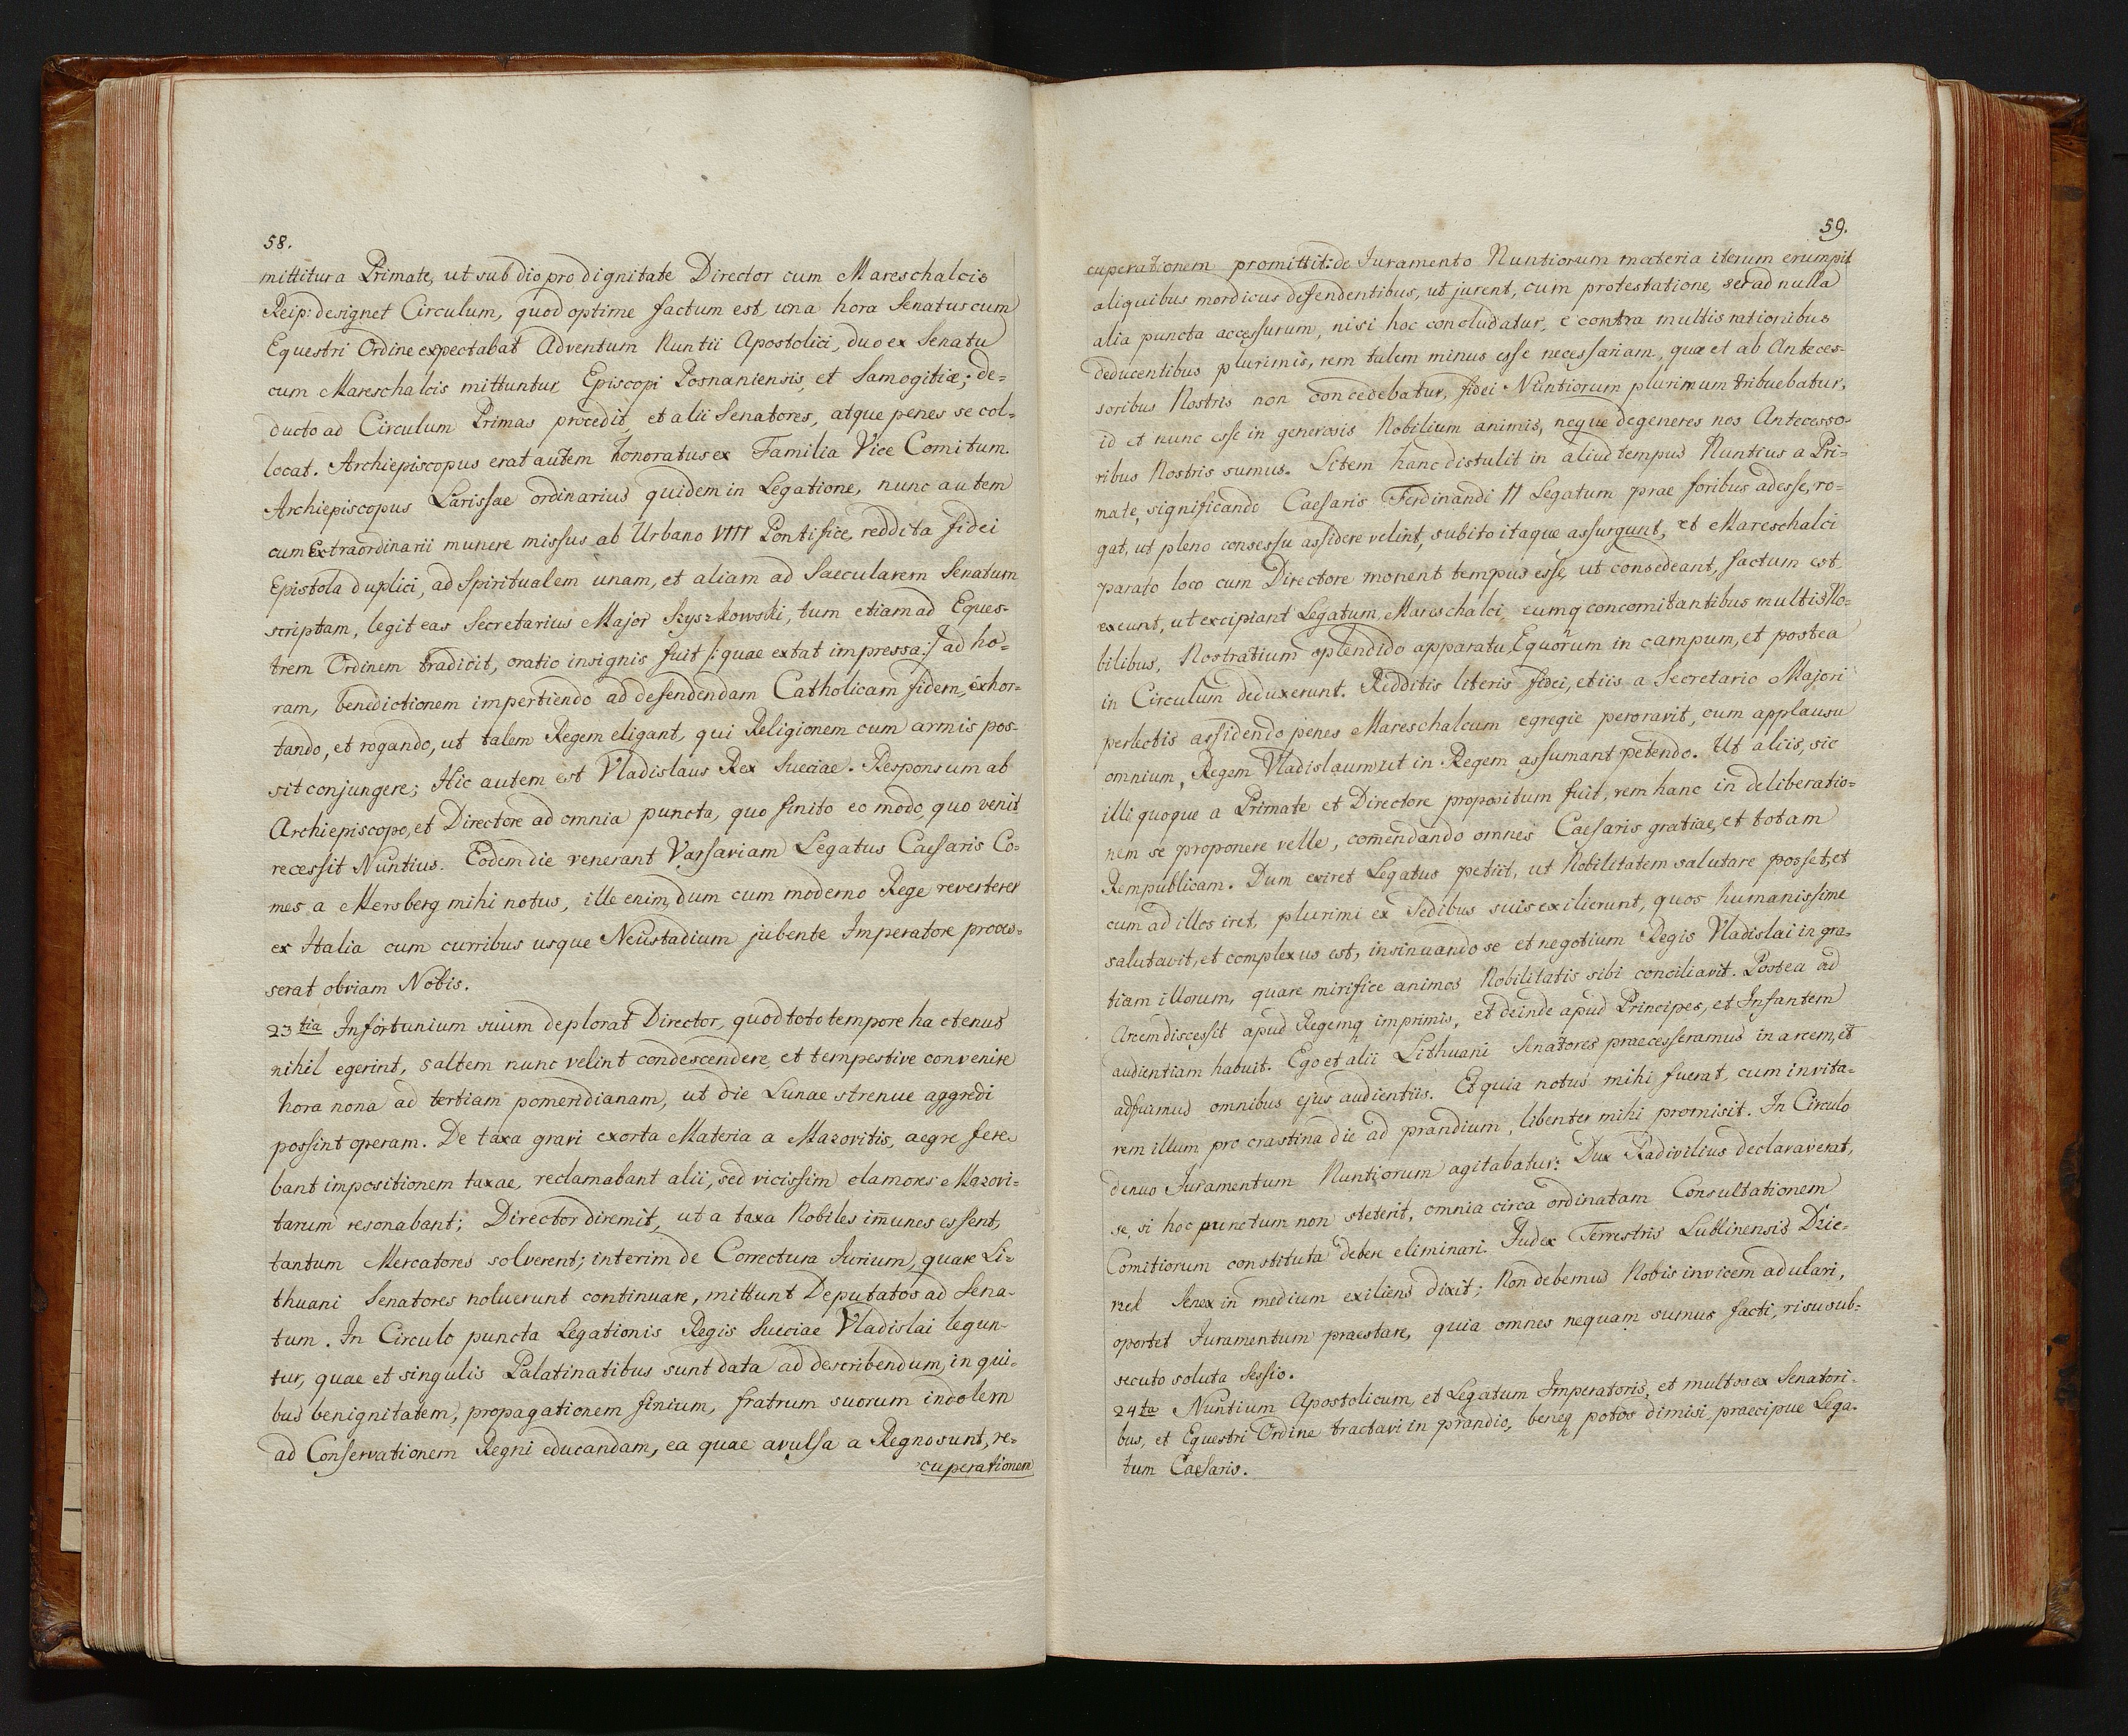 58.
mittitur a Primate, ut sub dio pro dignitate Director cum Mareschalcis
Reip: designet Circulum, quod optime factum est, una hora Senatus cum
Equestri Ordine expectabat Adventum Nuntii Apostolici, duo ex Senatu
cum Mareschalcis mittuntur, Episcopi Posnaniensis, et Samogitiæ; de=
ducto ad Circulum Primas procedit, et alii Senatores, atque penes se col=
locat. Archiepiscopus erat autem honoratus ex Familia Vice Comitum.
Archiepiscopus Larissae ordinarius quidem in Legatione, nunc autem
cum Extraordinarii munere missus ab Urbano VIII Pontifice, reddita fidei
Epistola duplici, ad Spiritualem unam, et aliam ad Saecularem Senatum
scriptam, legit eas Secretarius Major Szyszkowski, tum etiam ad Eques-
trem Ordinem tradidit, oratio insignis fuit /: quae extat impressa :/ ad ho=
ram, benedictionem impertiendo ad defendendam Catholicam fidem, exhor-
tando, et rogando, ut talem Regem eligant, qui Religionem cum armis pos-
sit conjungere; Hic autem est Vladislaus Rex Sueciae. Responsum ab
Archiepiscopo, et Directore ad omnia puncta, quo finito eo modo, quo venit
recessit Nuntius. Eodem die venerant Varsaviam Legatus Caesaris Co=
mes a Mersberg mihi notus, ille enim, dum cum moderno Rege reverterer
ex Italia cum curribus usque Neustadium jubente Imperatore proces=
serat obviam Nobis.
23tia Infortunium suum deplorat Director, quod toto tempore hactenus
nihil egerint, saltem nunc velint condescendere, et tempestive convenire
hora nona ad tertiam pomeridianam, ut die Lunae strenue aggredi
possint operam. De taxa gravi exorta Materia a Mazovitis, aegre fere
bant impositionem taxae, reclamabant alii, sed vicissim clamores Mazovi=
tarum resonabant; Director diremit, ut a taxa Nobiles im̅unes essent,
tantum Mercatores solverent; interim de Correctura Jurium, quare Li=
thuani Senatores noluerunt continuare, mittunt Deputatos ad Sena-
tum. In Circulo puncta Legationis Regis Sueciae Vladislai legun-
tur, quae et singulis Palatinatibus sunt data ad describendum, in qui=
bus benignitatem, propagationem finium, fratrum suorum indolem
ad Conservationem Regni educandam, ea quae avulsa a Regno sunt, re=
cuperationem
59.
cuperationem promittit: de Juramento Nuntiorum materia iterum erumpit
aliquibus mordicus defendentibus, ut jurent, cum protestatione, se ad nulla
alia puncta accessurum, nisi hoc concludatur, e contra multis rationibus
deducentibus plurimis, rem talem minus esse necessariam, quæ et ab Anteces-
soribus Nostris non concedebatur, fidei Nuntiorum plurimum tribuebatur,
id et nunc esse in generosis Nobilium animis, neque degeneres nos Antecesso-
ribus Nostris sumus. Litem hanc distulit in aliud tempus Nuntius a Pri=
mate, significando Caesaris Ferdinandi II Legatum prae foribus adesse, ro=
gat, ut pleno consessu assidere velint, subito itaque assurgunt, et Mareschalci
parato loco cum Directore monent tempus esse, ut consedeant, factum est.
exeunt, ut excipiant Legatum, Mareschalci, eumq concomitantibus multis No=
bilibus, Nostratium splendido apparatu Equorum in campum, et postea
in Circulum deduxerunt. Redditis literis fidei, et iis a Secretario Majori
perlectis assidendo penes Mareschalcum egregie peroravit, cum applausu
omnium, Regem Vladislaum ut in Regem assumant petendo. Ut aliis, sic
illi quoque a Primate et Directore propositum fuit, rem hanc in deliberatio=
nem se proponere velle, com̅endando omnes Caesaris gratiae, et totam
Rempublicam. Dum exiret Legatus petiit, ut Nobilitatem salutare posset, et
cum ad illos iret, plurimi ex Sedibus suis exilierunt, quos humanissime
salutavit, et complexus est, insinuando se et negotium Regis Vladislai in gra-
tiam illorum, quare mirifice animos Nobilitatis sibi conciliavit. Postea ad
Arcem discessit apud Regemq imprimis, et deinde apud Principes, et Infantem
audientiam habuit. Ego et alii Lithuani Senatores praecesseramus in arcem, et
adfuimus omnibus ejus audientiis. Et quia notus mihi fuerat, cum invita-
rem illum pro crastina die ad prandium, libenter mihi promisit. In Circulo
denuo Juramentum Nuntiorum agitabatur: Dux Radivilius declaraverat,
se, si hoc punctum non steterit, omnia circa ordinatam Consultationem
Comitiorum constituta debere eliminari. Judex Terrestris Lublinensis Dzie-
rzek Senex in medium exiliens dixit; Non debemus Nobis invicem adulari,
oportet Juramentum praestare, quia omnes nequam sumus facti, risu sub=
secuto soluta Sessio.
24ta Nuntium Apostolicum, et Legatum Imperatoris, et multos ex Senatori-
bus, et Equestri Ordine tractavi in prandio, beneq potos dimisi, praecipue Lega-
tum Caesaris.